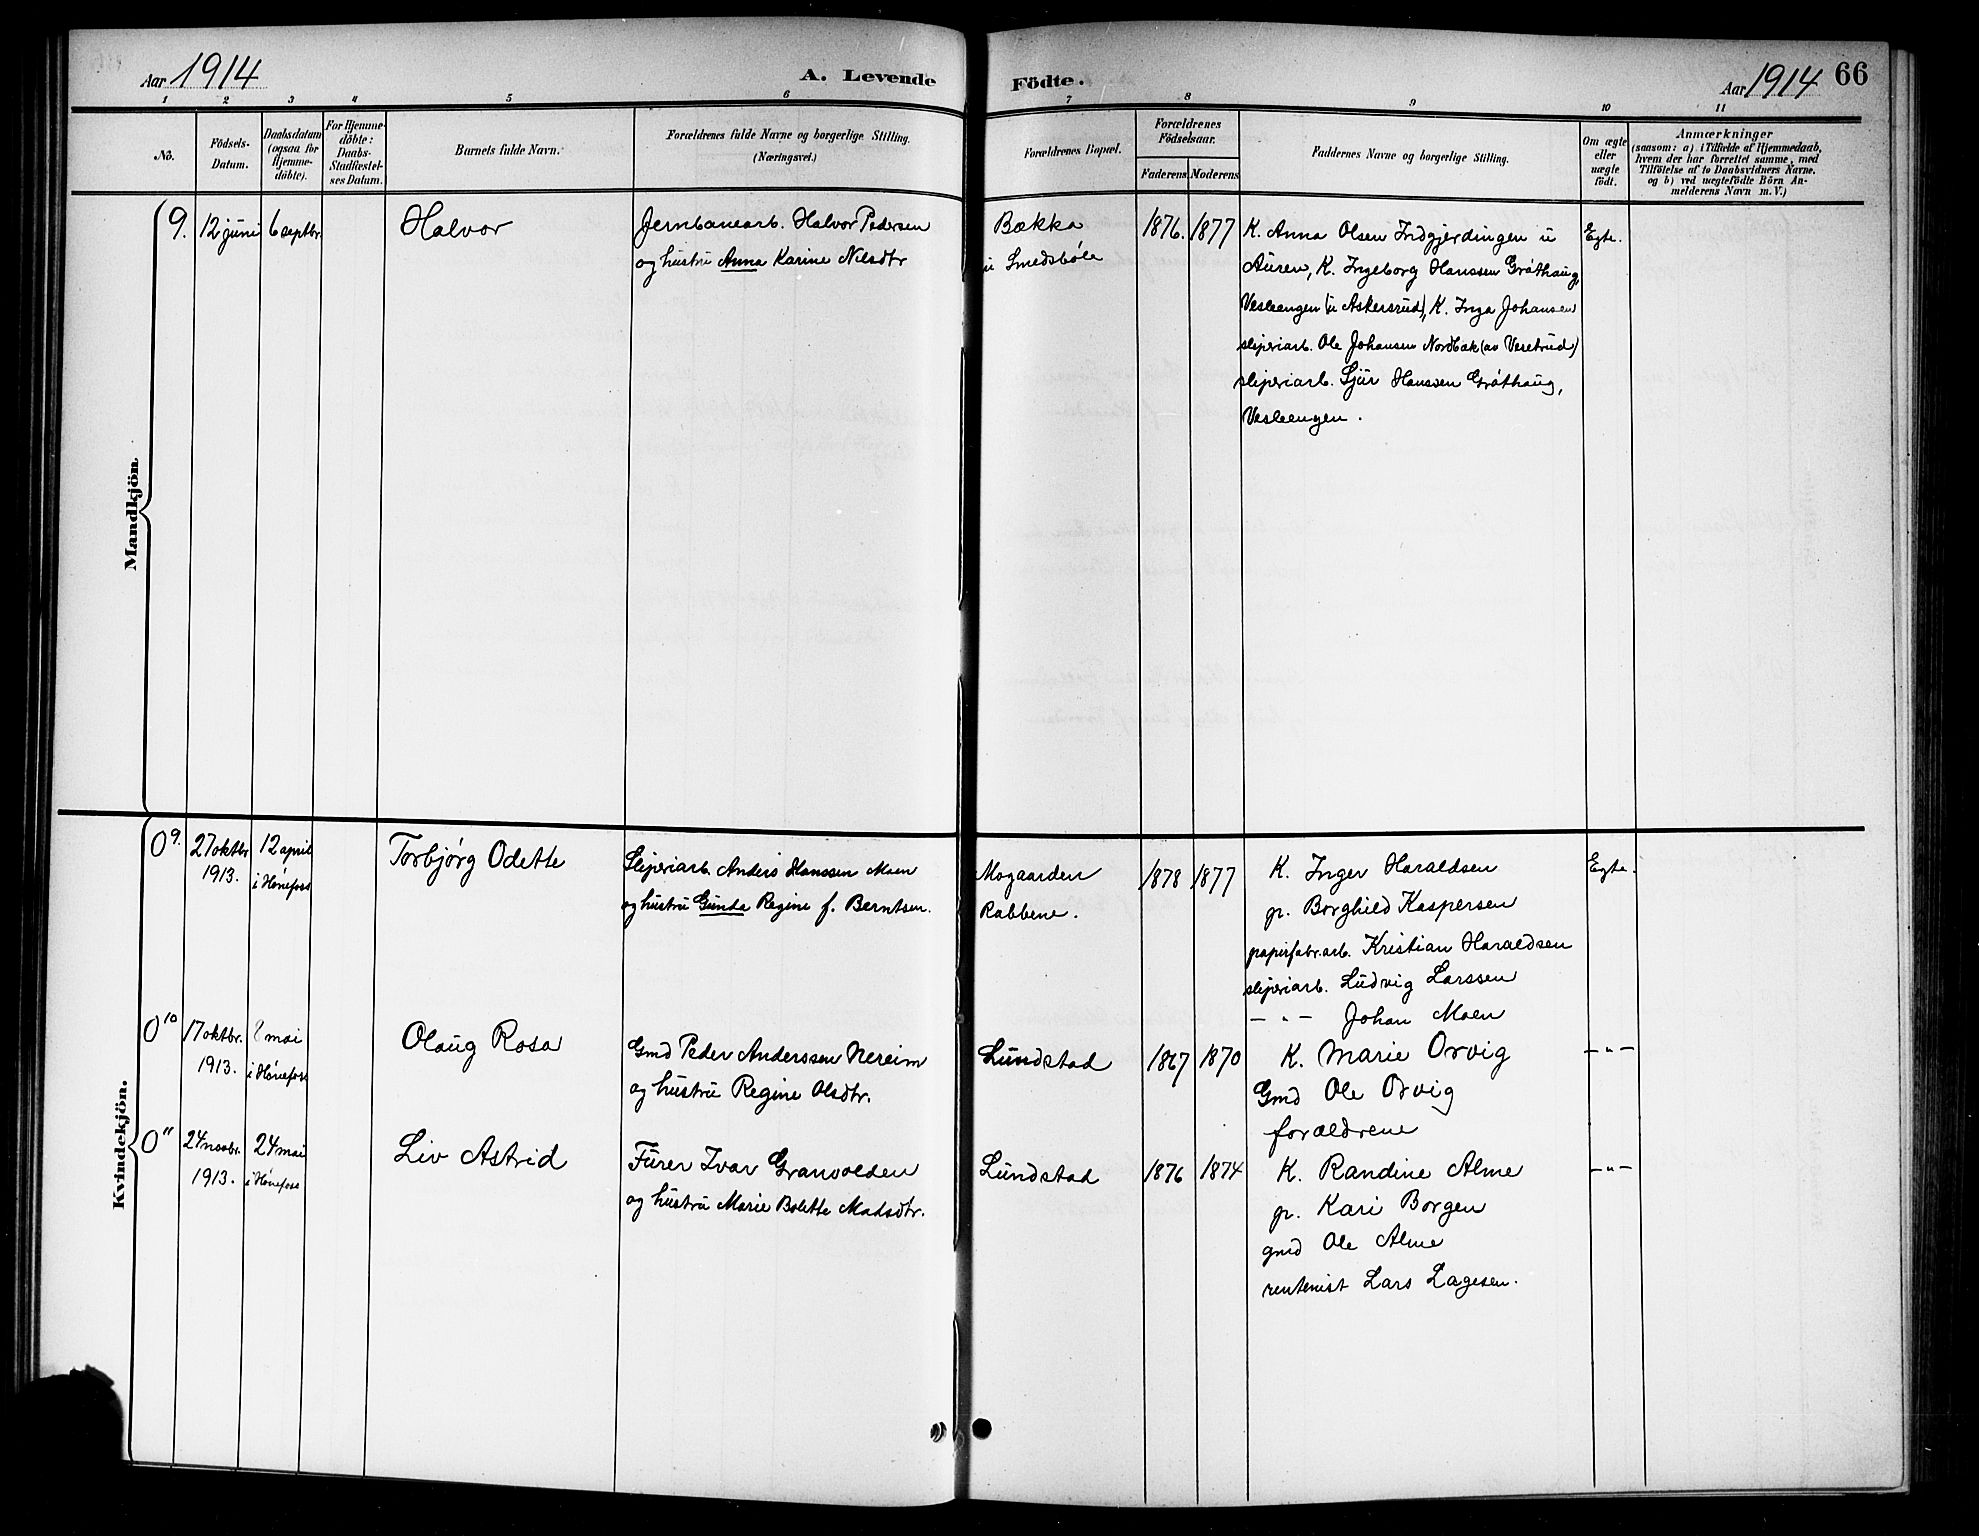 Aar 1914
A. Levende
Födte.
Aar 1914 66
1 2 3 4 5 6 7 8 9 10 11
No.
Födsels-
Datum.
Daabsdatum
(ogsaa for
Hjemme-
döbte).
For Hjemme-
döbte:
Daabs-
Stadfæstel-
ses Datum.
Barnets fulde Navn.
Forældrenes fulde Navne og borgerlige Stilling.
(Næringsvei.)
Forældrenes Bopæl.
Forældrenes
Födselsaar.
Faderens Moderens
Faddernes Navne og borgerlige Stilling.
Om ægte
eller
uægte
født.
Anmærkninger
(saasom: a) i Tilfælde af Hjemmedaab,
hvem der har forrettet samme, med
Tilföielse af to Daabsvidners Navne.
og b) ved uægtefödte Börn An-
melderens Navn m. V.)
Mandkjön
9. 12 juni 6 septbr. Halvor
Jernbanearb. Halvor Pedersen
og hustru Anna Karine Nilsdtr
Bækka
u Smedsbøle
1876. 1877
K. Anna Olsen Indgjerdingen u
Auren, K. Ingeborg Hanssen Gråthaug,
Vesleengen (u Askersrud), K. Inga Johansen
sliperiarb. Ole Johansen Nordbæk (av Vesetrud)
sliperiarb. Sjur Hanssen Gråthaug,
Vesleengen.
Egte.
Kvindekjön.
O 9. 27 oktbr
1913.
12 april
i Hønefoss
Torbjørg Odette
Sliperiarb. Anders Hanssen Moen
og hustru Gunda Regine f. Berntsen.
Mogaarden
Rabbene.
1878 1877
K. Inger Haraldsen
p. Borghild Kaspersen
papirfabr.arb. Kristian Haraldsen
sliperiarb. Ludvig Larssen
— " — Johan Moen
Egte.
O 10 17 oktbr.
1913.
8 mai
i Hønefoss
Olaug Rosa
Gmd Peder Anderssen Nereim
og hustru Regine Olsdtr.
Lundstad
1867 1870
K. Marie Orvig
Gmd Ole Orvig
forældrene
— " —
O 11 24 novbr.
1913.
24 mai
i Hønefoss
Liv Astrid
Furer Ivar Granvolden
og hustru Marie Bolette Madsdtr.
Lundstad
1876 1874
K. Randine Alme
p. Kari Borgen
gmd Ole Alme
rentenist Lars Lagesen.
— " —